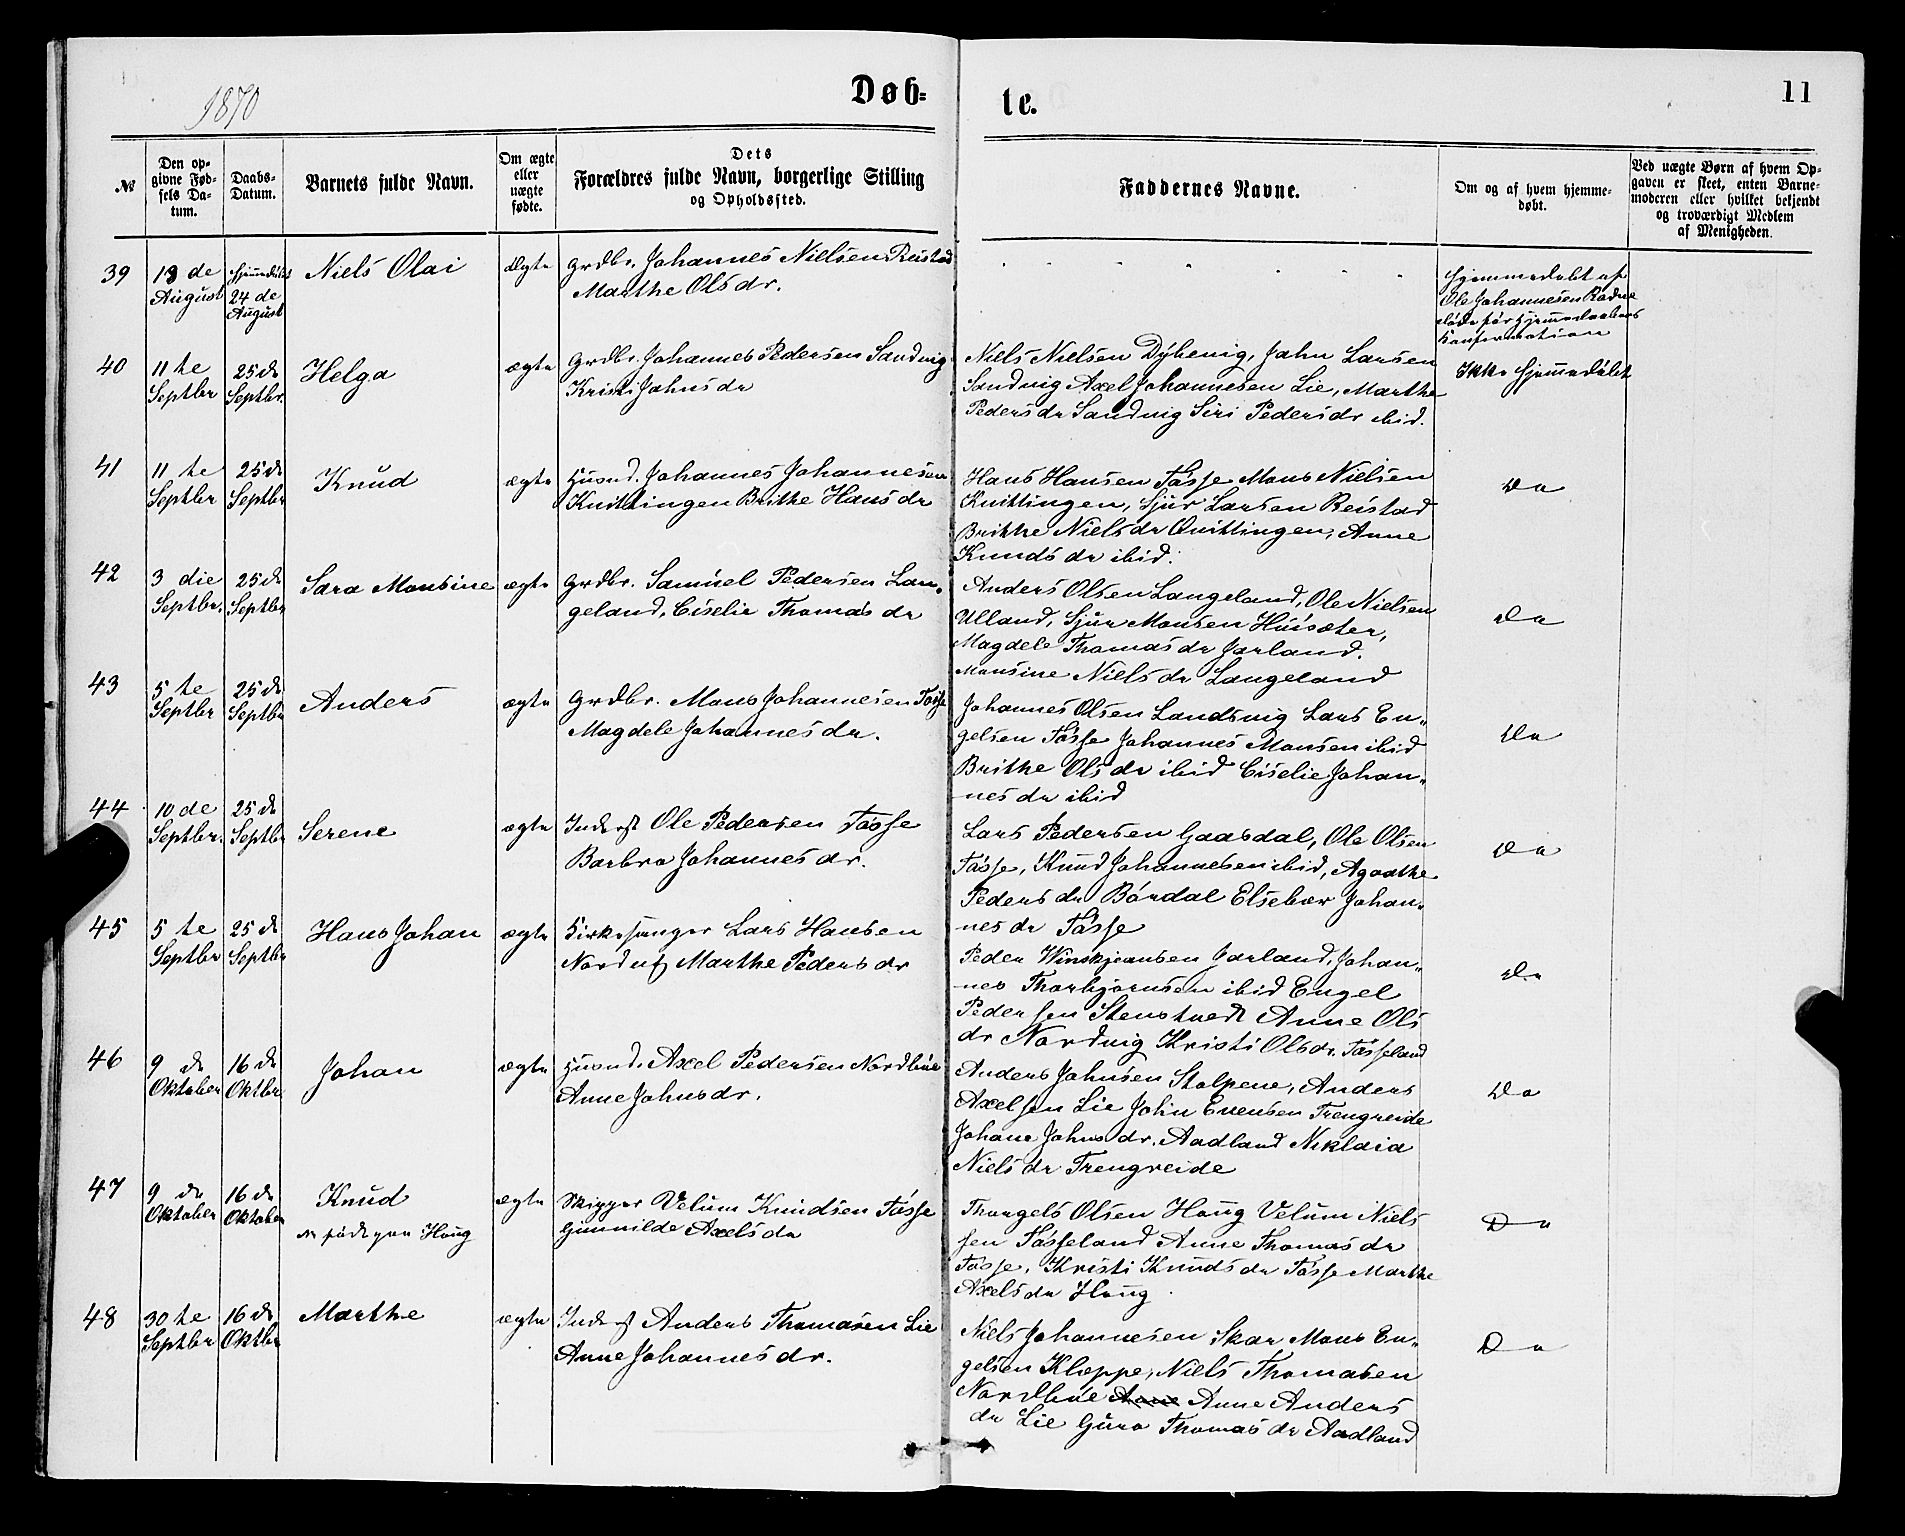 1870
Døb=
te.
11
№
Den op=
givne Fød=
sels Da=
tum.
Daabs=
Datum.
Barnets fulde Navn.
Om ægte
eller
uægte
fødte.
Dets
Forældres fulde Navn, borgerlige Stilling
og Opholdssted.
Faddernes Navne.
Om og af hvem hjemme=
døbt.
Ved uægte Børn af hvem Op=
gaven er skeet, enten Barne=
moderen eller hvilket bekjendt
og troværdigt Medlem
af Menigheden.
39
13 de
August
Hjemmedøbt
24 de
August
Niels Olai
ægte
Grdbr. Johannes Nielsen Reistad
Marthe Olsdr.
Hjemmedøbt af
Ole Johannesen
døde før Hjemmedaabens
Konfirmation
40
11 te
Septbr
25 de
Septbr.
Helga
ægte
Grdbr. Johannes Pedersen Sandvig
Kristi Johnsdr
Niels Nielsen Dybevig, John Larsen
Sandvig Axel Johannesen Lie, Marthe
Pedersdr Sandvig Siri Pedersdr ibid.
Ikke hjemmedøbt
41
11 te
Septbr
25 de
Septbr
Knud
ægte
Husmd. Johannes Johannesen
Kvittingen Brithe Hansdr
Hans Hansen Tøsse Mons Nielsen
Kvittingen, Sjur Larsen Reistad
Brithe Nielsdr Qvittingen, Anne
Knudsdr ibid.
Do
42
3 die
Septbr.
25 de
Septbr
Sara Monsine
ægte
Grdbr. Samuel Pedersen Lan=
geland, Ciselie Thomasdr
Anders Olsen Langeland, Ole Nielsen
Ulland, Sjur Monsen Husæter,
Magdele Thomasdr Jarland.
Monsine Nielsdr Langeland
Do
43
5 te
Septbr
25 de
Septbr
Anders
ægte
Grdbr. Mons Johannesen Tøsse
Magdele Johannesdr.
Johannes Olsen Landsvig Lars En=
gelsen Tøsse Johannes Monsen ibid
Brithe Olsdr ibid Ciselie Johan=
nesdr ibid
Do
44
10 de
Septbr.
25 de
Septbr
Serene
ægte
Inderst Ole Pedersen Tøsse
Barbro Johannesdr.
Lars Pedersen Gaasdal, Ole Olsen
Tøsse, Knud Johannesen ibid, Agaathe
Pedersdr Børdal Elsebær Johan=
nesdr Tøsse
Do
45
5 te
Septbr
25 de
Septbr
Hans Johan
ægte
Kirkesanger Lars Hansen
Marthe Pedersdr
Peder Jarland, Johan=
nes Thorbjørnsen ibid Engel
Pedersen Anne Ols
dr Nordvig Kristi Olsdr. Tøsseland
Do
46
9 de
Oktober
16 de
Oktbr
Johan
ægte
Husmd. Axel Pedersen Nordhuie
Anne Johnsdr.
Anders Johnsen Stolpene, Anders
Axelsen Lie John Evensen Trengreide
Johane Johnsdr. Aadland
Nielsdr Trengreide
Do
47
9 de
Oktober
16 de
Oktober
Knud
født paa Houg
ægte
Skipper Velum Knudsen Tøsse
Gunnilde Axelsdr
Thorgels Olsen Houg Velum Niels
sen Tøsseland Anne Thomasdr
Tøsse, Kristi Knudsdr Tøsse Marthe
Axelsdr Houg
Do
48
30 te
Septbr
16 de
Oktbr
Marthe
ægte
Inderst Anders Thomasen Lie
Anne Johannesdr.
Niels Johannesen Skar Mons En=
gelsen Kleppe, Niels Thomasen
Nordhuie Anne Anne Anders
dr Lie Guro Thomasdr Aadland
Do